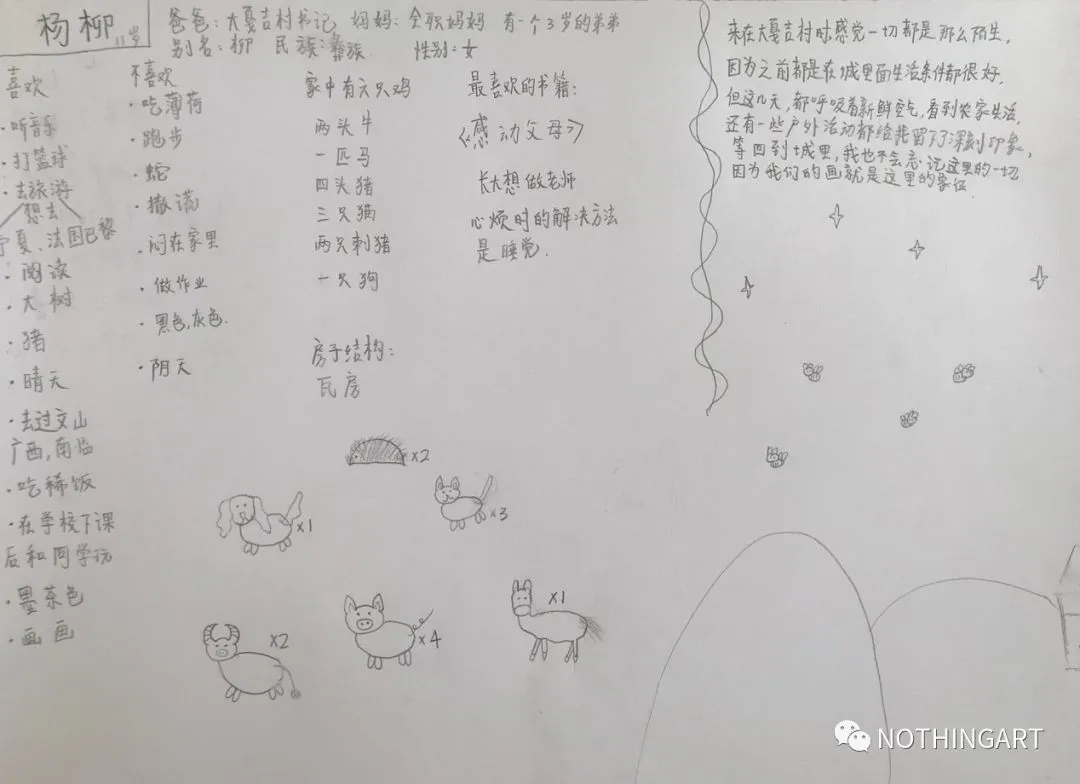 杨柳 11岁
爸爸：大戛吉村书记 妈妈：全职妈妈 有一个3岁的弟弟
别名：柳 民族：彝族 性别：女
喜欢
·听音乐
·打篮球
·去旅游
想去
宁夏、法国巴黎
·阅读
·大树
·猪
·晴天
·去过文山
广西，南临
·吃稀饭
·在学校下课
后和同学玩
·墨茶色
·画画
不喜欢
·吃薄荷
·跑步
·蛇
·撒谎
·闷在家里
·做作业
·黑色，灰色.
·阴天
家中有六只鸡
两头牛
一匹马
四头猪
三只猫
两只刺猪
一只狗
房子结构：
瓦房
最喜欢的书籍：
《感动父母》
长大想做老师
心烦时的解决方法
是睡觉.
来在大戛吉村时感觉一切都是那么陌生，
因为之前都是在城里面生活条件都很好.
但这几天，都呼吸着新鲜空气，看到农家生活，
还有一些户外活动都给我留下了深刻印象，
等回到城里，我也不会忘记这里的一切
因为我们的画就是这里的象征
×2
×1
×3
×2
×4
×1
NOTHINGART